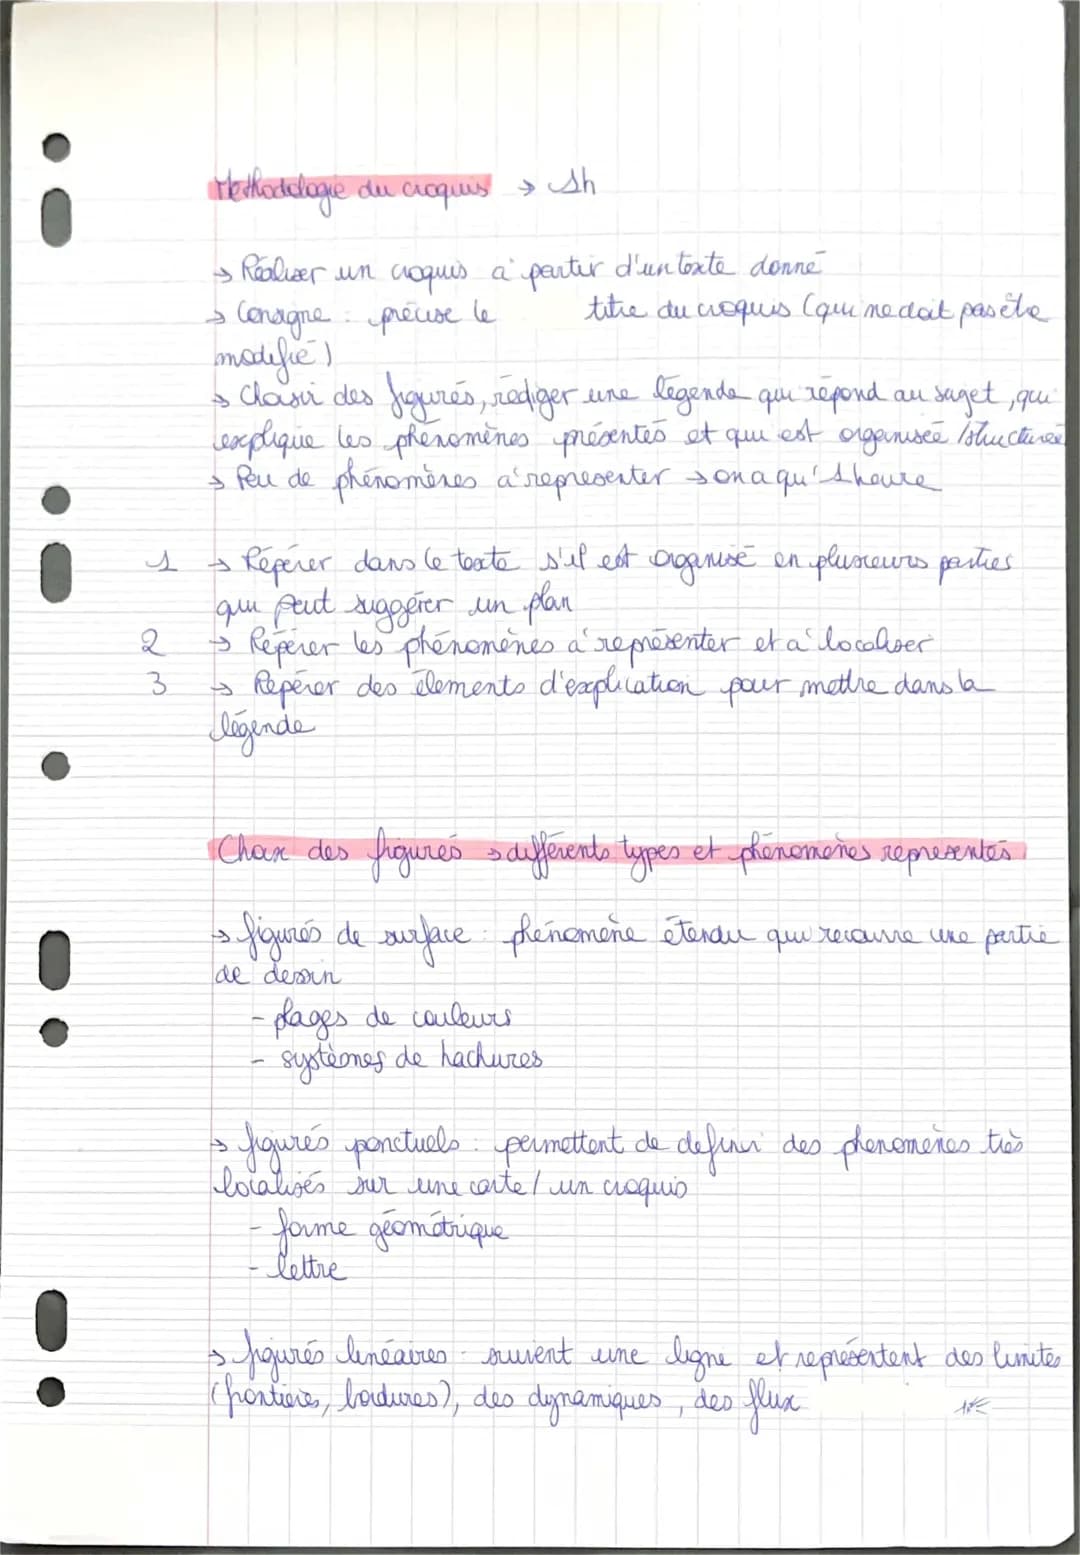 Methodologie du croquis → 1h
→ Réaliser un croquis à partir d'un texte donné
→ Consigne : précise le titre du croquis (qui ne doit pas être
modifié)
→ Choisir des figurés, rédiger une légende qui répond au sujet, qui
explique les phénomènes présentés et qui est organisée / structurée
→ Peu de phénomènes à représenter → on a qu'1 heure
1 → Répérer dans le texte s'il est organisé en plusieurs parties
qui peut suggérer un plan
2 → Répérer les phénomènes à représenter et à localiser
3 → Repérer des élements d'explication pour mettre dans la
légende
Choix des figurés → différents types et phénomènes representés
→ figurés de surface : phénomène étendu qui recouvre une partie
de dessin
- plages de couleurs
- systèmes de hachures
→ figurés ponctuels : permettent de definir des phenomènes très
localisés sur une carte / un croquis
- forme géométrique
- lettre
→ figurés linéaires : suivent une ligne et représentent des limites
(frontières, bordures), des dynamiques, des flux